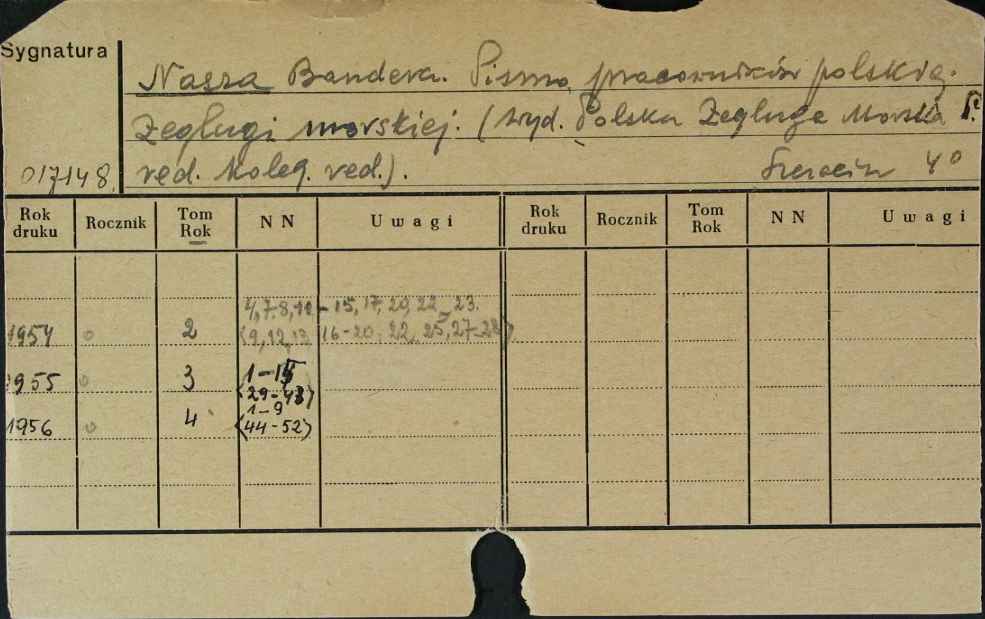 Sygnatura
Nasza Bandera. Pismo pracowników polskiej
Żeglugi morskiej. (Wyd. Polska Żegluga Morska P.
017148. red. Koleg. red.). Szczecin 4°
Rok druku Rocznik Tom Rok NN Uwagi Rok druku Rocznik Tom Rok NN Uwagi
4,7-8,10-15,17,20,22-23.
1954 0 2 (9,12,13,16-20,22,25,27-28)
1955 0 3 1-15
(29-43)
1-9
1956 0 4 (44-52)